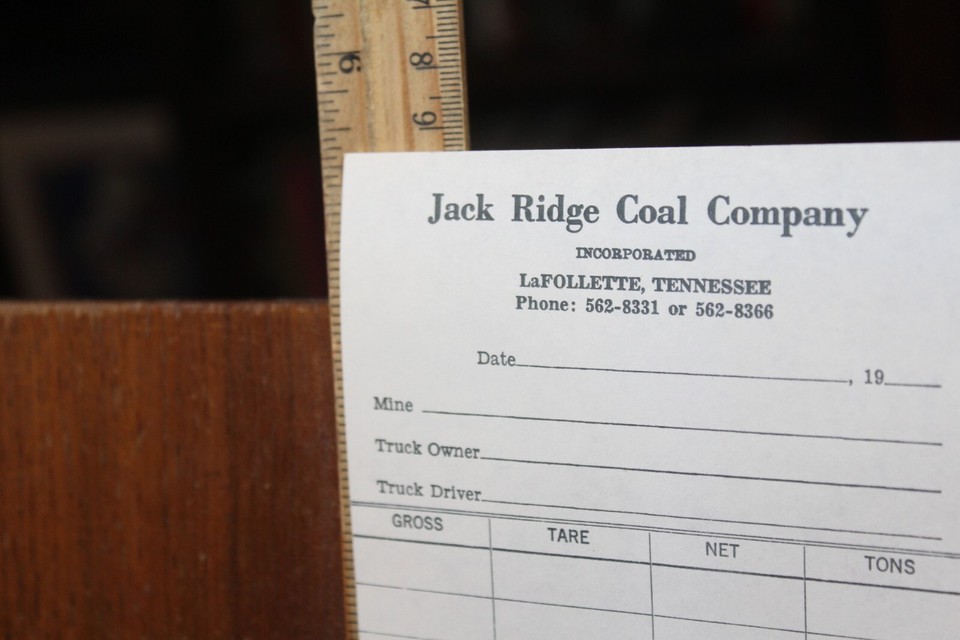 9
8
6
Jack Ridge Coal Company
INCORPORATED
LaFOLLETTE, TENNESSEE
Phone: 562-8331 or 562-8366
Date, 19
Mine
Truck Owner
Truck Driver
GROSS TARE NET TONS